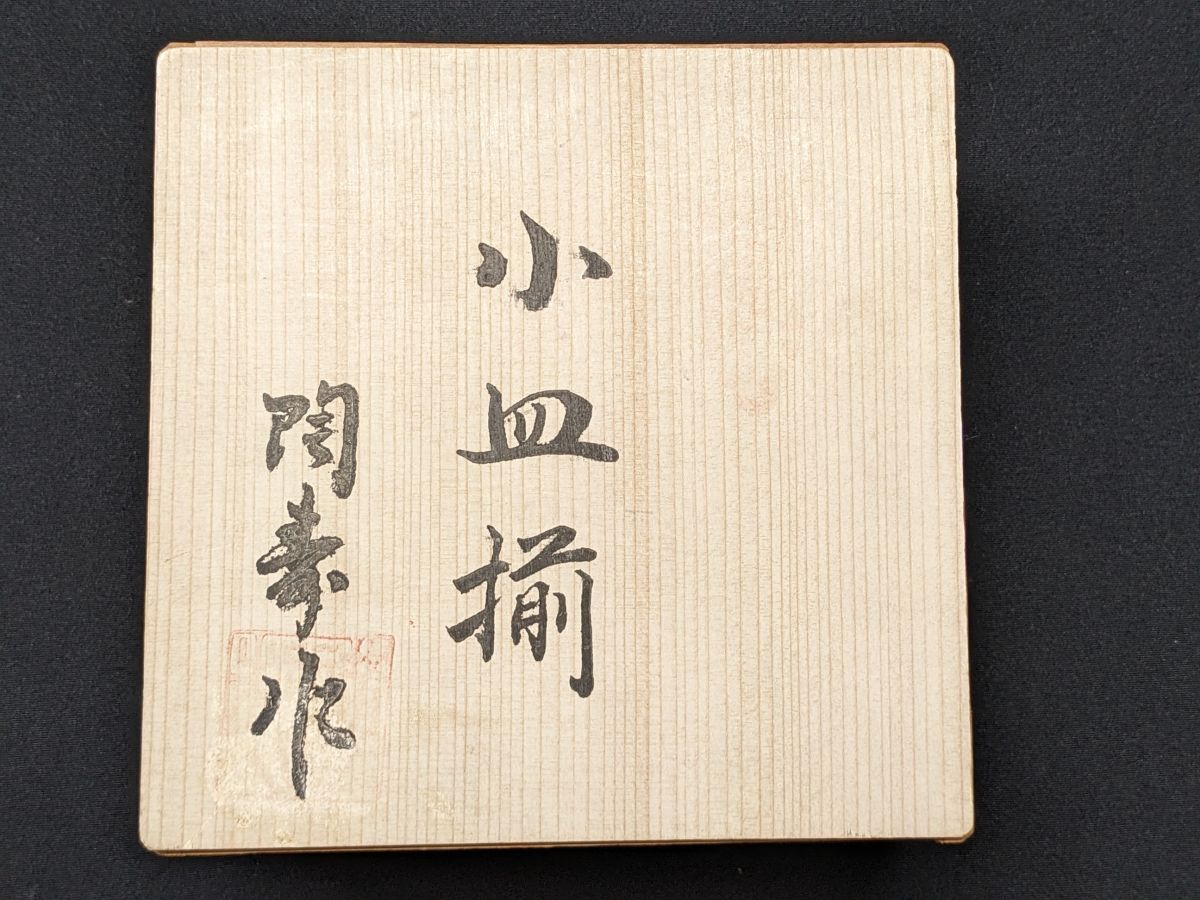 小皿揃
陶寿作